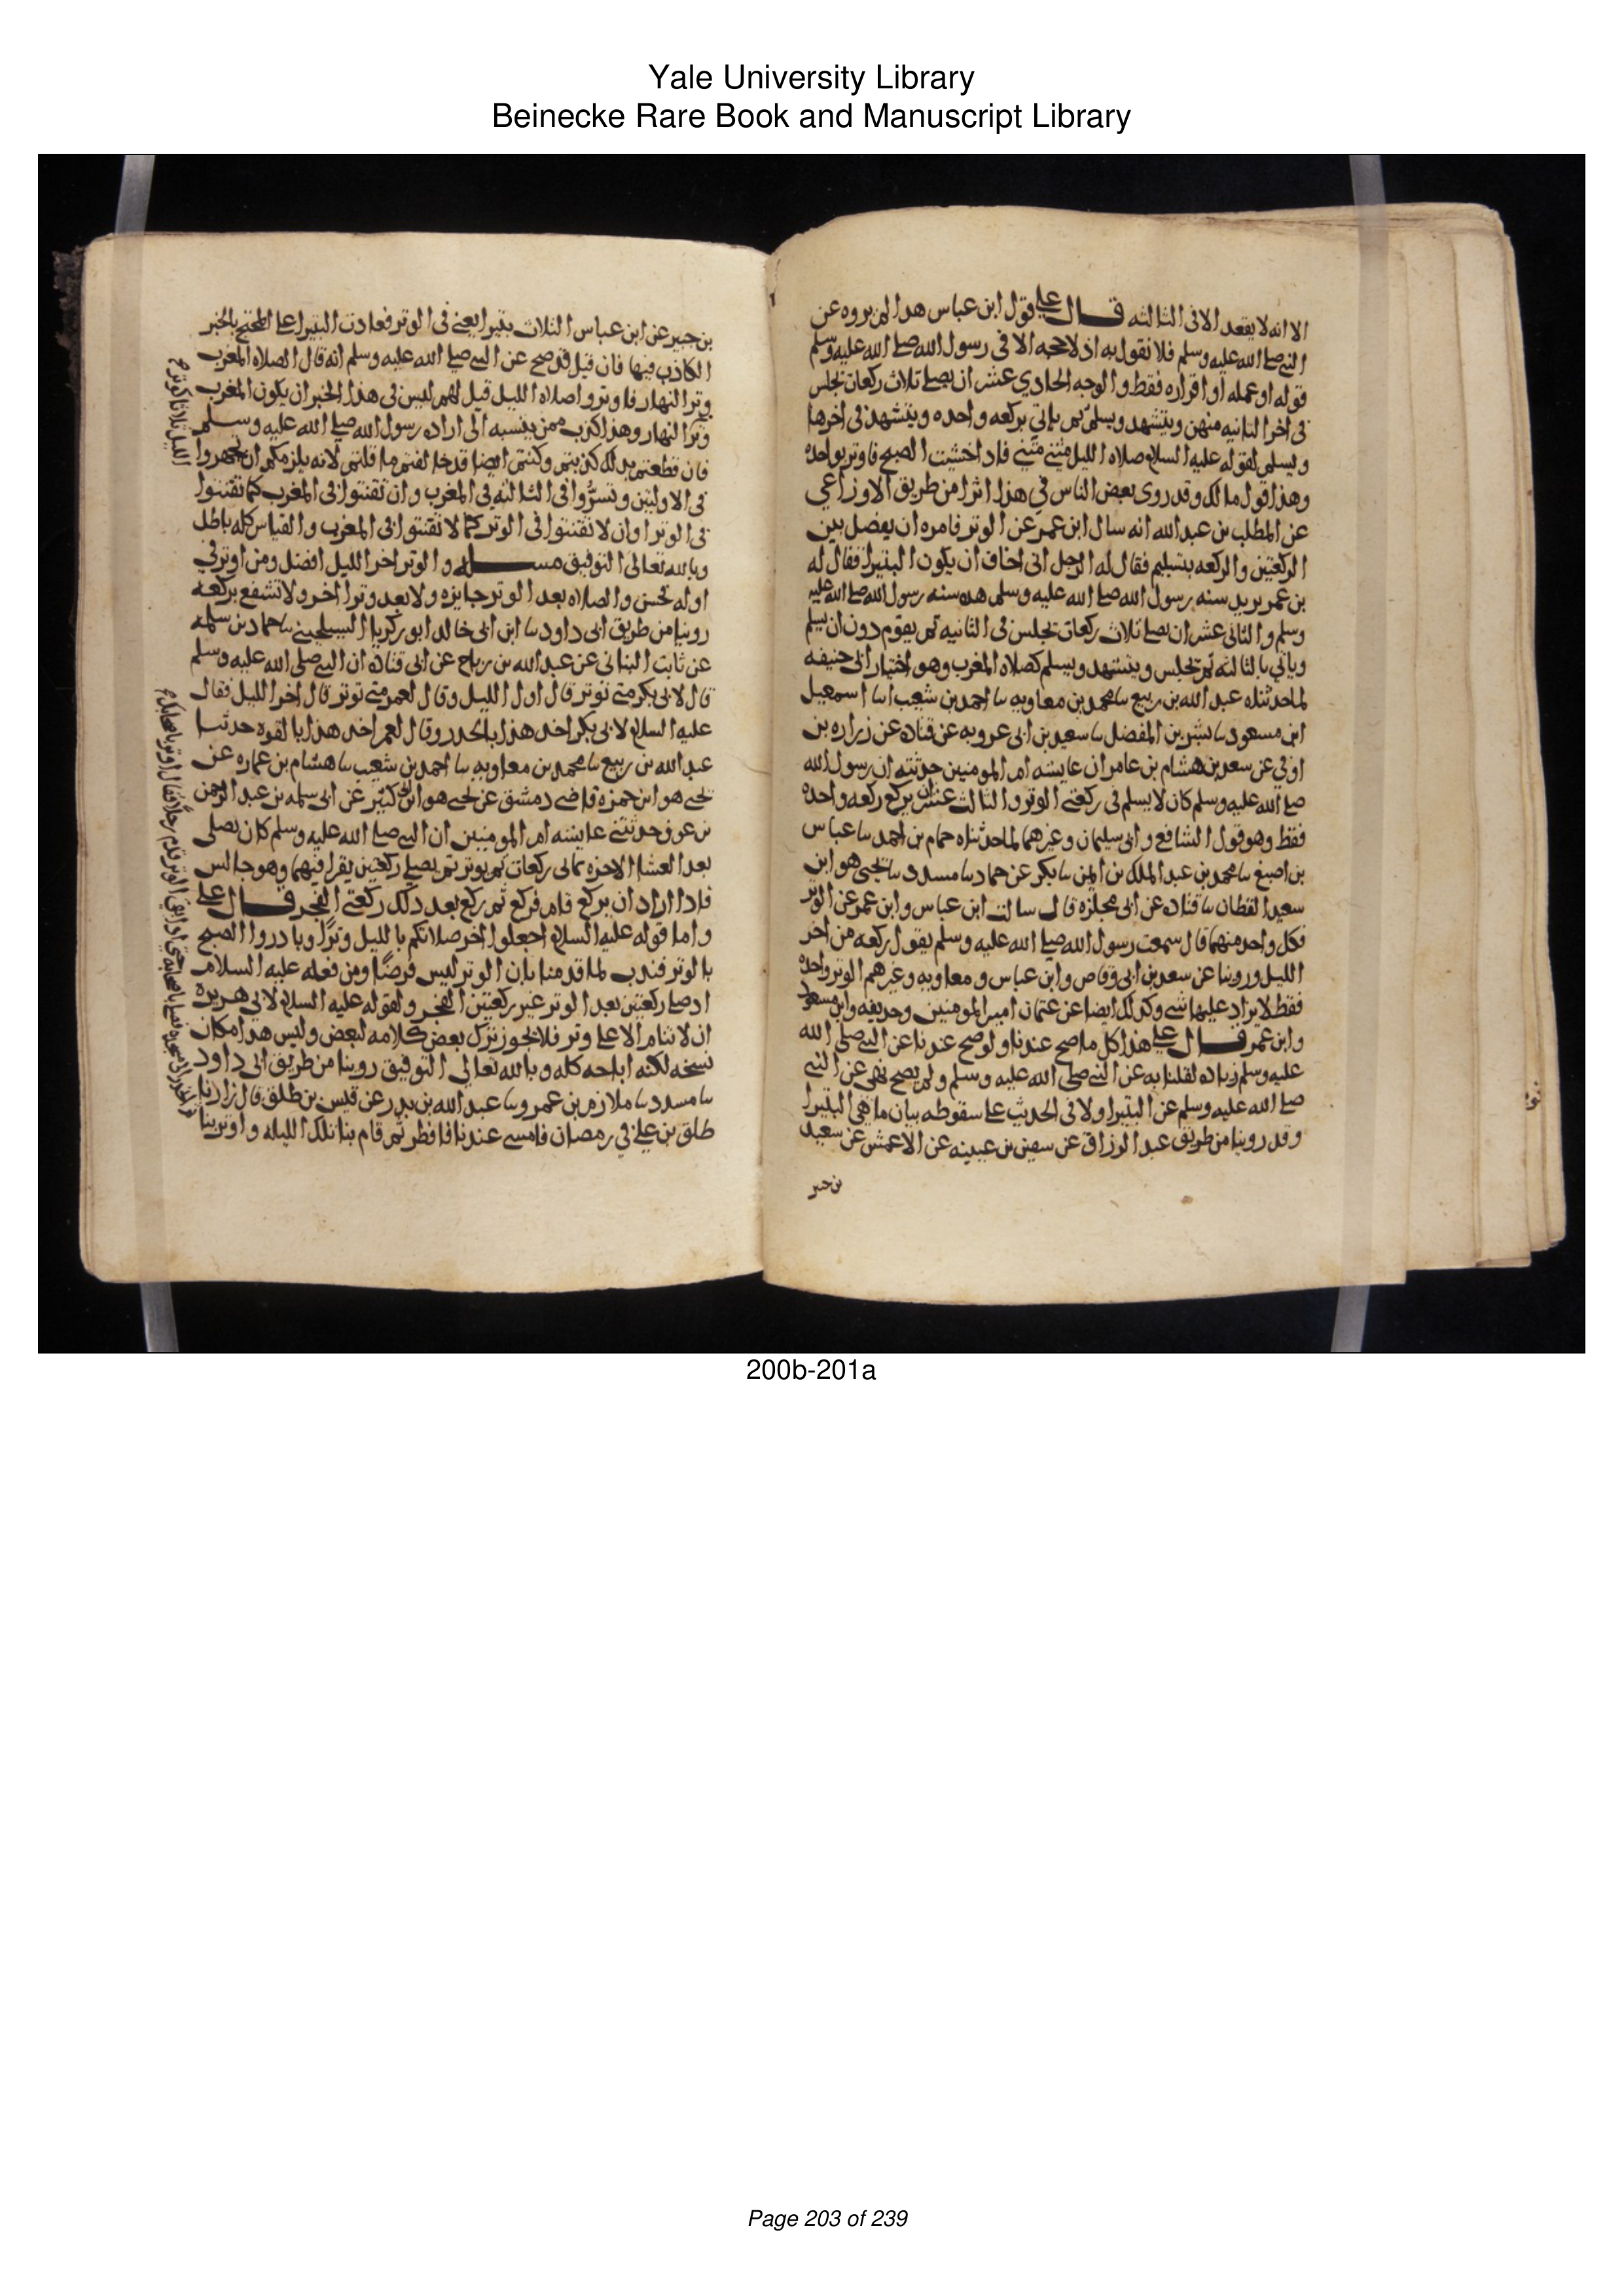 Yale University Library
Beinecke Rare Book and Manuscript Library
الا انه لا يقعد الا فى الثالثه قال على قول ابن عباس هذا لم يروه عن
النبي صلى الله عليه وسلم فلا نقول به اذ لا حجه الا فى رسول الله صلى الله عليه وسلم
قوله او عمله او اقراره فقط والوجه الحادي عشر ان يصلى ثلاث ركعات يجلس
فى اخر الثانيه منهن ويتشهد ويسلم ثم ياتي بركعه واحده ويتشهد فى اخرها
ويسلم لقوله عليه السلام صلاه الليل مثنى مثنى فاذا خشيت الصبح فاوتر بواحده
وهذا قول مالك وقد روى بعض الناس في هذا اثرا من طريق الاوزاعي
عن المطلب بن عبد الله انه سال ابن عمر عن الوتر فامره ان يفصل بين
الركعتين والركعه بتسليم فقال له الرجل انى اخاف ان يكون البتيرا فقال له
بن عمر يريد سنه رسول الله صلى الله عليه وسلم هذه سنه رسول الله صلى الله عليه
وسلم والثانى عشر ان يصلى ثلاث ركعات يجلس فى الثانيه ثم يقوم دون ان يسلم
وياتي بالثالثه ثم يجلس ويتشهد ويسلم كصلاه المغرب وهو اختيار ابى حنيفه
لما حدثناه عبد الله بن ربيع ىا محمد بن معاويه ىا احمد بن شعيب اىا اسمعيل
ابن مسعود ىا بشر بن المفضل ىا سعيد بن ابى عروبه عن قتاده عن زراره بن
اوفي عن سعد بن هشام بن عامر ان عايشه ام المومنين حدثته ان رسول الله
صلى الله عليه وسلم كان لا يسلم فى ركعتي الوتر والثالث عشر ان يركع ركعه واحده
فقط وهو قول الشافعى وابى سليمان وغيرهما لما حدثناه حمام بن احمد ىا عباس
بن اصبغ ىا محمد بن عبد الملك بن ايمن ىا بكر عن حماد ىا مسدد ىا يحيى هو ابن
سعيد القطان ىا قتاده عن ابى مجلزه قال سالت ابن عباس وابن عمر عن الوتر
فكل واحد منهما قال سمعت رسول الله صلى الله عليه وسلم يقول ركعه من اخر
الليل وروينا عن سعد بن ابى وقاص وابن عباس ومعاويه وغيرهم الوتر واحده
فقط لا يزاد عليها شى وكذلك ايضا عن عثمان امير المومنين وحذيفه وابن مسعود
وابن عمر قال على هذا كل ما صح عندنا ولو صح عندنا عن النبي صلى الله
عليه وسلم زياده لقلنا به عن النبي صلى الله عليه وسلم ولم يصح نهى عن النبي
صلى الله عليه وسلم عن البتيرا ولا فى الحديث على سقوطه بيان ما هى البتيرا
وقد روينا من طريق عبد الرزاق عن سفين بن عيينه عن الاعمش عن سعيد
بن جبير
بن جبير عن ابن عباس الثلاث بتيرا يعنى فى الوتر فعادت البتيرا على المحتج بالخبر
الكاذب فيها فان قيل قد صح عن النبي صلى الله عليه وسلم انه قال الصلاه المغرب
وتر النهار فاوتروا صلاه الليل قيل لهم ليس فى هذا الخبر ان يكون المغرب
وتر النهار وهذا كذب ممن ينسبه الى اراده رسول الله صلى الله عليه وسلم
فان قطعتم بذلك كذبتم وكنتم ايضا قد خالفتم ما قلتم لانه يلزمكم ان تجهروا
فى الاوليين وتسروا فى الثالثه فى المغرب وان تقنتوا فى المغرب كما تقنتوا
فى الوتر او ان لا تقنتوا فى الوتر كما لا تقنتوا فى المغرب والقياس كله باطل
وبالله تعالى التوفيق مسـله والوتر اخر الليل افضل ومن اوتر في
اوله فحسن والصلاه بعد الوتر جايزه ولا يعيد وترا اخر ولا تشفع بركعه
روينا من طريق ابى داود ىا ابن ابى خالد ابو زكريا السيلحيني ىا حماد بن سلمه
عن ثابت البنانى عن عبد الله بن رباح عن ابى قتاده ان النبي صلى الله عليه وسلم
قال لابى بكر متى توتر قال اول الليل وقال لعمر متى توتر قال اخر الليل فقال
عليه السلام لابى بكر اخذ هذا بالحذر وقال لعمر اخذ هذا بالقوه حدثنا
عبد الله بن ربيع ىا محمد بن معاويه ىا احمد بن شعيب ىا هشام بن عماره عن
يحيى هو ابن حمزه قاضى دمشق عن يحيى هو ابن ابى كثير عن ابى سلمه بن عبد الرحمن
بن عوف حدثتني عايشه ام المومنين ان النبي صلى الله عليه وسلم كان يصلى
بعد العشا الاخره ثمانى ركعات ثم يوتر ثم يصلى ركعتين يقرا فيهما وهو جالس
فاذا اراد ان يركع قام فركع ثم ركع بعد ذلك ركعتي الفجر قال على
واما قوله عليه السلام اجعلوا اخر صلاتكم بالليل وترا وبادروا الصبح
بالوتر فندب لما قدمنا بان الوتر ليس فرضا ومن فعله عليه السلام
اذ صلى ركعتين بعد الوتر غير ركعتين الفجر ولقوله عليه السلام لابى هريره
ان لا تنام الا على وتر فلا يجوز ترك بعض كلامه لبعض وليس هذا مكان
نسخه لكنه اباحه كله وبالله تعالى التوفيق روينا من طريق ابى داود
ىا مسدد ىا ملازم بن عمرو ىا عبد الله بن بدر عن قيس بن طلق قال زارنا
طلق بن على في رمضان فامسى عندنا فافطر ثم قام بنا تلك الليله واوتر بنا
200b-201a
Page 203 of 239